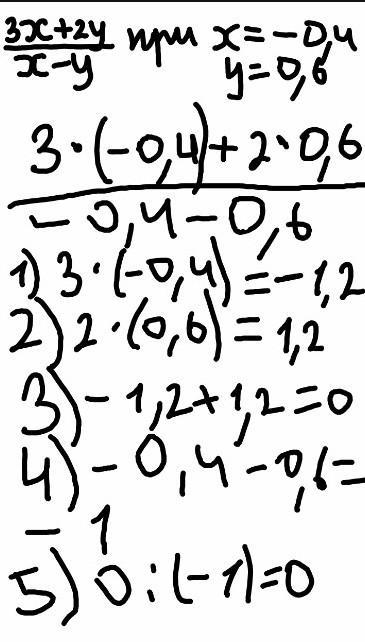 3x+2y при x=-0,4
x-y y=0,6
3·(-0,4)+2·0,6
-0,4-0,6
1) 3·(-0,4)=-1,2
2) 2·(0,6)=1,2
3) -1,2+1,2=0
4) -0,4-0,6=
-1
5) 0:(-1)=0